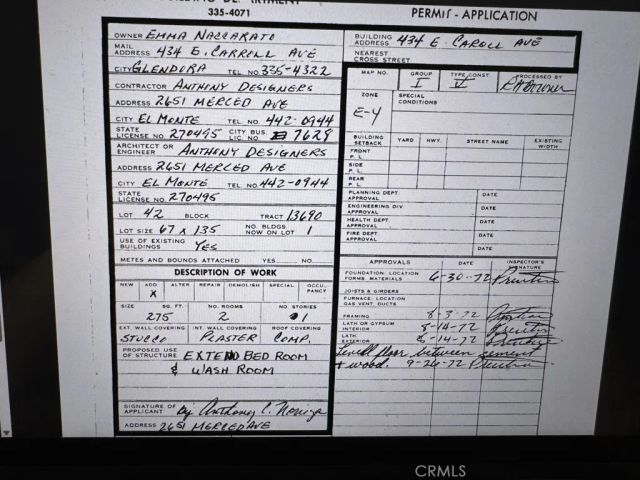 335-4071
PERMIT - APPLICATION
OWNER EMMA NACCARATO
MAIL ADDRESS 434 E. CARROLL AVE
CITY GLENDORA TEL. NO. 335-4322
CONTRACTOR ANTHONY DESIGNERS
ADDRESS 2651 MERCED AVE
CITY EL MONTE TEL. NO. 442-0944
STATE LICENSE NO. 270495 CITY BUS. LIC. NO. 7628
ARCHITECT OR ENGINEER ANTHONY DESIGNERS
ADDRESS 2651 MERCED AVE
CITY EL MONTE TEL. NO. 442-0944
STATE LICENSE NO. 270495
LOT 42 BLOCK TRACT 13690
LOT SIZE 67 X 135 NO. BLDGS. NOW ON LOT 1
USE OF EXISTING BUILDINGS YES
METES AND BOUNDS ATTACHED YES NO
DESCRIPTION OF WORK
NEW ADD. ALTER REPAIR DEMOLISH SPECIAL OCCUPANCY
X
SIZE SQ. FT. NO. ROOMS NO. STORIES
275 2 1
EXT. WALL COVERING INT. WALL COVERING ROOF COVERING
STUCCO PLASTER COMP.
PROPOSED USE OF STRUCTURE EXTEND BED ROOM
& WASH ROOM
SIGNATURE OF APPLICANT By Anthony C.
ADDRESS 2651 MERCED AVE
BUILDING ADDRESS 434 E. CAROLL AVE
NEAREST CROSS STREET
MAP NO. GROUP TYPE CONST. PROCESSED BY
I V
ZONE SPECIAL CONDITIONS
E-4
BUILDING SETBACK YARD HWY. STREET NAME EXISTING WIDTH
FRONT P. L.
SIDE P. L.
REAR P. L.
PLANNING DEPT. APPROVAL DATE
ENGINEERING DIV. APPROVAL DATE
HEALTH DEPT. APPROVAL DATE
FIRE DEPT. APPROVAL DATE
DATE
APPROVALS DATE INSPECTOR'S SIGNATURE
FOUNDATION: LOCATION FORMS, MATERIALS 6-30-72
JOISTS & GIRDERS
FURNACE: LOCATION GAS VENT, DUCTS
FRAMING 8-3-72
LATH OR GYPSUM INTERIOR 8-14-72
LATH EXTERIOR 8-14-72
floor between cement
& wood. 9-26-72
CRMLS